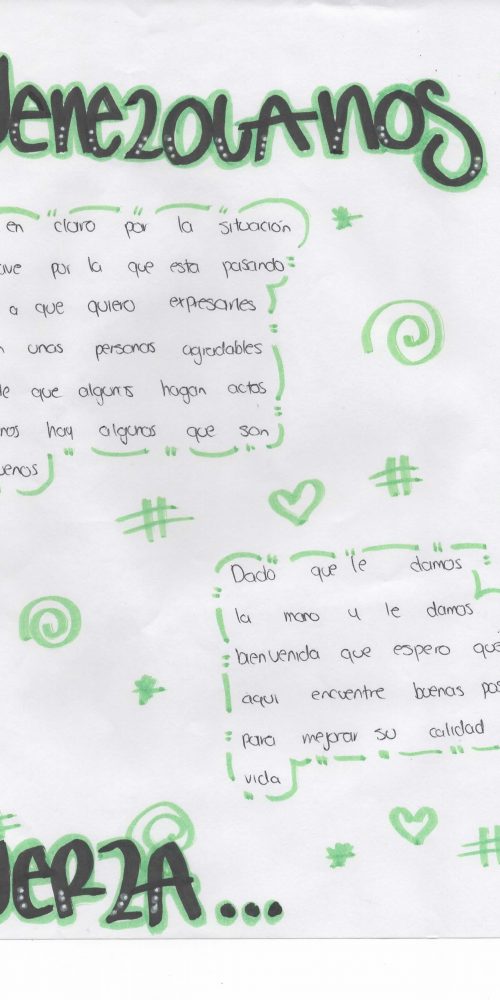 VeneZOLANOS
en claro por la situación
ave por la que esta pasando
a que quiero expresarles
n unas personas agradables
de que algunas hagan actos
nos hay algunos que son
uenos
Dado que le damos
la mano y le damos
bienvenida que espero que
aqui encuentre buenas pos
para mejorar su calidad
vida
UERZA...